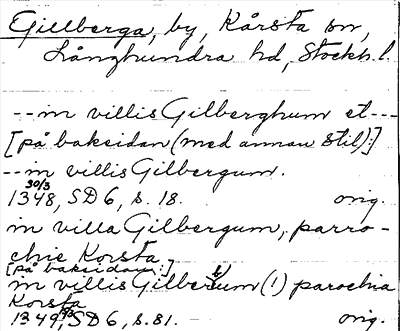 Gillberga, by, Kårsta sn,
Långhundra hd, Stockh. l.
-- in villis Gilberghum et ---
[på baksidan (med annan stil):]
-- in villis Gilbergum.
1348 30/3, SD 6, s. 18. orig.
in villa Gilbergum, parro-
chie Korsta
[på baksidan:]
in villis Gilberum (!) parochia
Korsta
1349, SD 6, s. 81. orig.